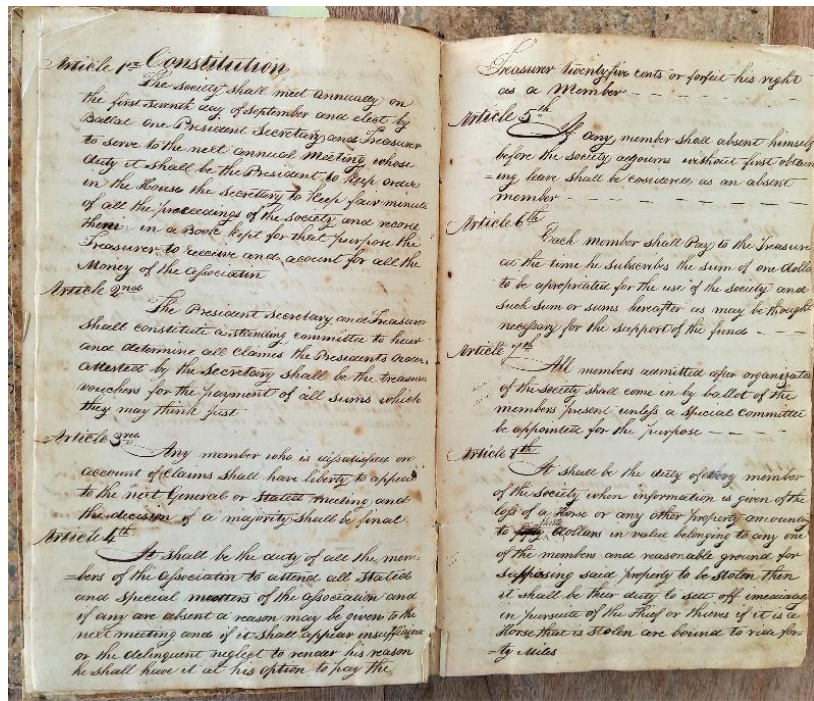 Article 1st Constitution
The Society shall meet annually on
the first Seventh day of September and elect by
Ballot one President Secretary and Treasurer
to serve to the next annual Meeting whose
duty it shall be the President to keep order
in the House the Secretary to keep fair minute
of all the proceedings of the Society and record
them in a Book kept for that purpose the
Treasurer to receive and acount for all the
Money of the Association
Article 2nd
The President Secretary and Treasurer
shall constitute a standing committee to hear
and determine all Claims the Presidents order
attested by the Secretary shall be the treasurers
vouchers for the payment of all sums which
they may think just
Article 3rd
Any member who is dissatisfied on
account of Claims shall have liberty to appeal
to the next General or Stated meeting and
the decision of a majority shall be final
Article 4th
It shall be the duty of all the mem-
=bers of the Association to attend all Stated
and Special meetters of the Association and
if any are absent a reason may be given to the
next meeting and if it shall appear insufficient
or the delinquent neglect to render his reason
he shall have it at his option to pay the
Treasurer twenty five cents or forfeit his right
as a Member
Article 5th
If any member shall absent himself
before the Society adjourns without first obtain
=ing leave shall be cosidered as an absent
member
Article 6th
Each member shall Pay to the Treasure
at the time he Subscribes the sum of one dolla
to be apropriated for the use of the Society and
such sum or sums hereafter as may be thought
necessary for the support of the funds
Article 7th
All members admitted after organizatio
of the Society shall come in by ballot of the
members present unless a Special Committe
be appointed for the purpose
Article 8th
It shall be the duty of every member
of the Society when information is given of the
loss of a Horse or any other property amounting
to thirty dollars in value belonging to any one
of the members and reasonable ground for
supposing said property to be stolen then
it shall be their duty to sett off imediately
in pursuite of the Thief or thieves if it is a
Horse that is Stolen are bound to ride for-
=ty Miles